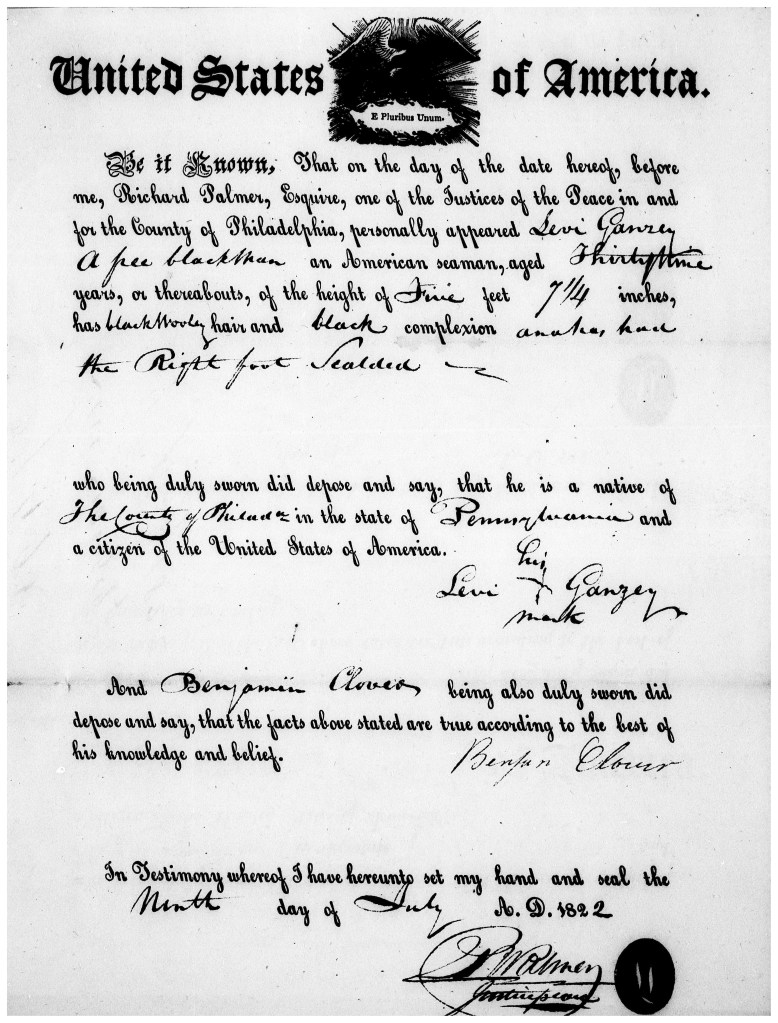 United States of America.
E Pluribus Unum.
Be it Known, That on the day of the date hereof, before
me, Richard Palmer, Esquire, one of the Justices of the Peace in and
for the County of Philadelphia, personally appeared Levi Ganzey
A free black Man an American seaman, aged Thirty nine
years, or thereabouts, of the height of Five feet 7 1/4 inches,
has black Wooly hair and black complexion and has had
the Right foot Scalded
who being duly sworn did depose and say, that he is a native of
The County of Philada in the state of Pennsylvania and
a citizen of the United States of America.
his
Levi Ganzey
mark
And Benjamin Clover being also duly sworn did
depose and say, that the facts above stated are true according to the best of
his knowledge and belief.
Benjan Clover
In Testimony whereof I have hereunto set my hand and seal the
Ninth day of July A. D. 1822